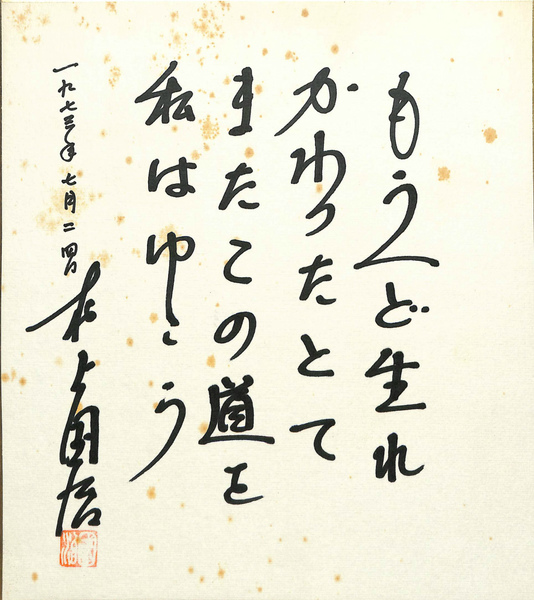 もう一ど生れ
かわったとて
またこの道を
私はゆこう
一九七三年七月二四日
村上国治